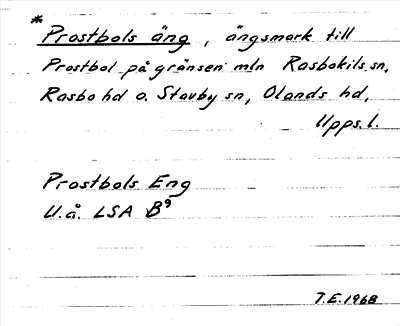 * Prostbols äng, ängsmark till
Prostbol på gränsen mln Rasbokils sn,
Rasbo hd o. Stavby sn, Olands hd,
Upps. l.
Prostbols Eng
U.å. LSA B⁹
T.E. 1968